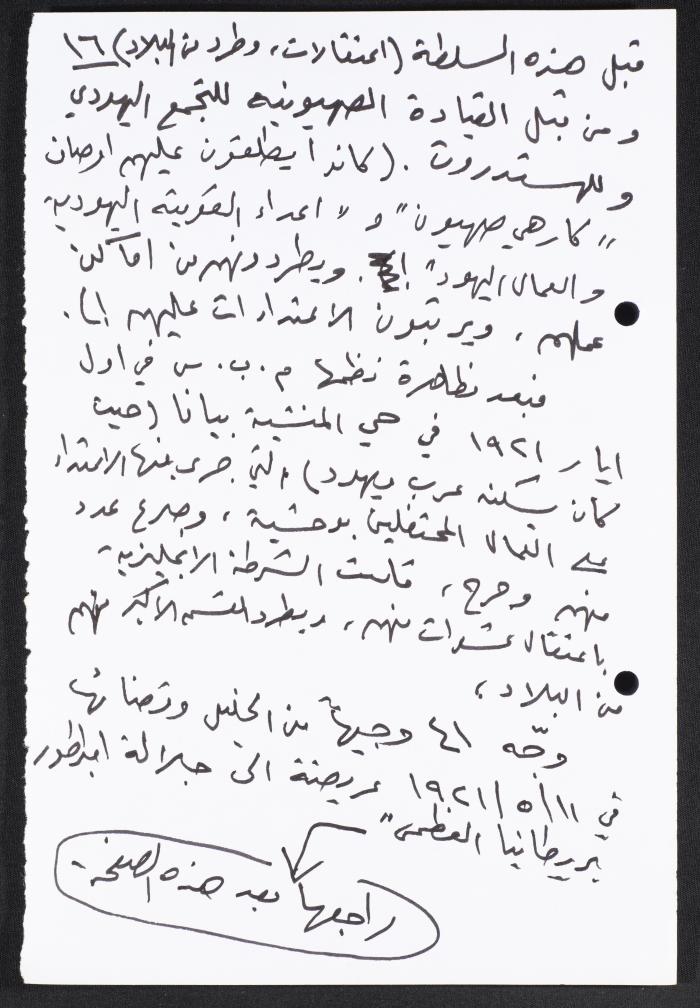 قبل هذه السلطة (اعتقالات، وطرد من البلاد) ١٦
ومن قبل القيادة الصهيونيه للتجمع اليهودي
وللهستدروت. (كانوا يطلقون عليهم اوصاف
"كارهي صهيون" و "اعداء القوميّة اليهودية
والعمال اليهود"!. ويطردونهم من اماكن
عملهم، ويرتبون الاعتداءات عليهم!).
فبعد تظاهرة نظمها م.ب.س في اول
ايار ١٩٢١ في حي المنشية بيافا (حيث
كان يسكنه عرب ويهود) والتي جرى بمنها الاعتداء
على العمال المحتفلين بوحشية، وصرع عدد
منهم وجرح، قامت الشرطة الانجليزية
باعتقال عشرات منهم، وبطرد القسم الاكبر منهم
من البلاد،
وجّه ٤١ وجيهاً من الخليل وقضائها
في ١١/٥/١٩٢١ عريضة الى جلالة امبراطور
بريطانيا العظمى"
راجعها بعد هذه الصفحة.